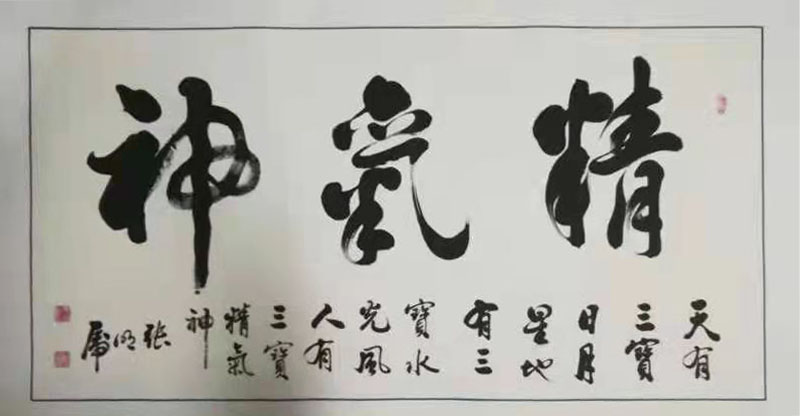 精氣神
天有
三寶
日月
星地
有三
寶水
火風
人有
三寶
精氣
神
张